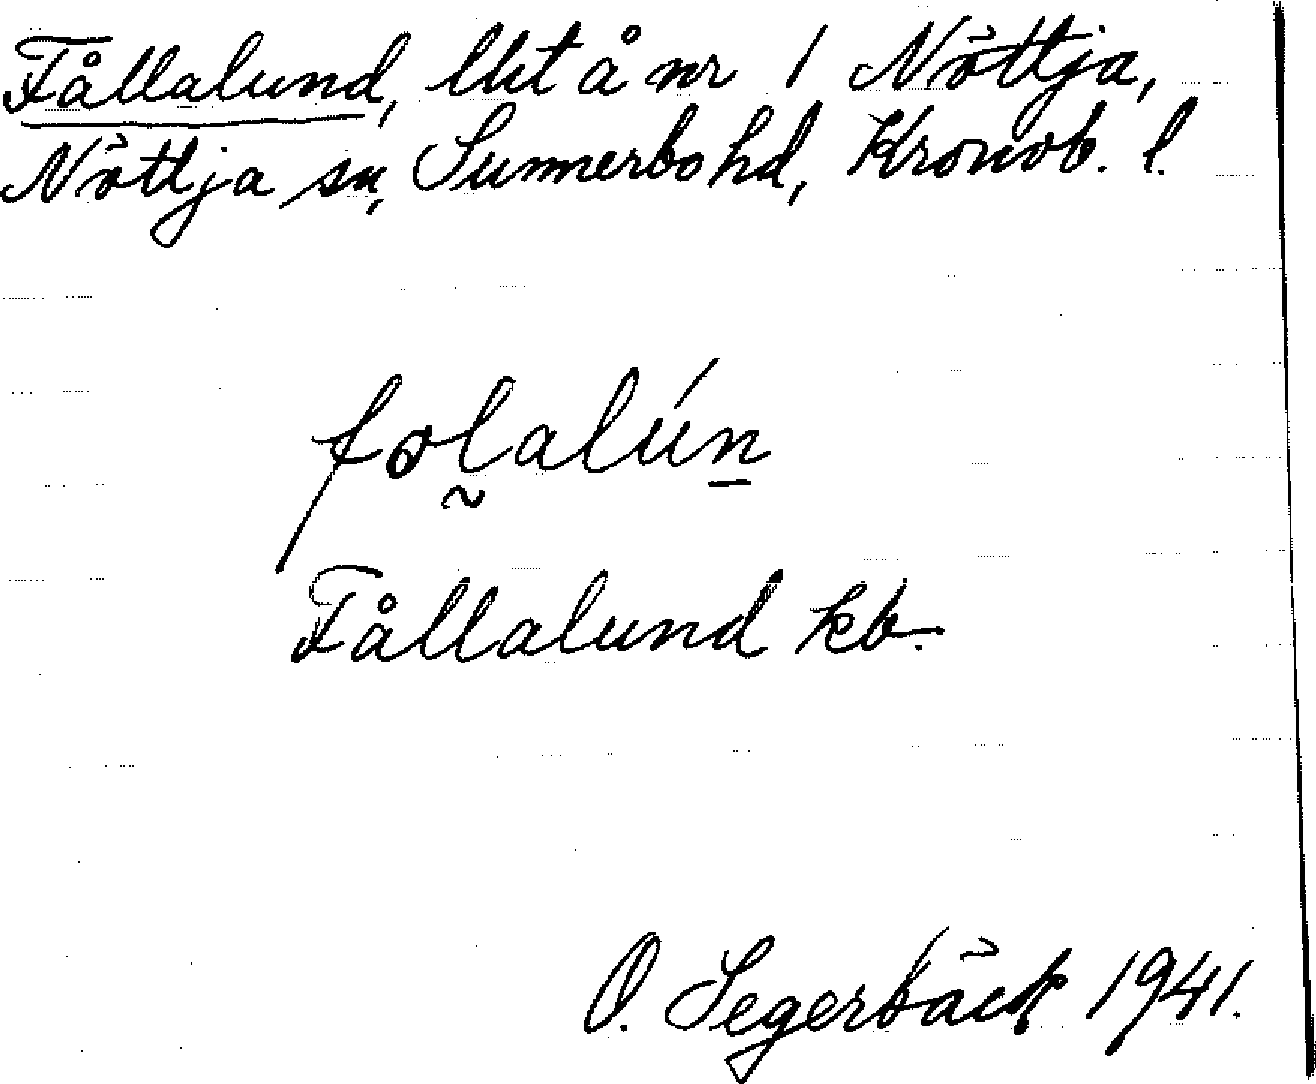 Fållalund, lht å nr 1 Nöttja,
Nöttja sn, Sunnerbo hd, Kronob. l.
fo̰lalún̲
Fållalund kb.
O. Segerbäck 1941.